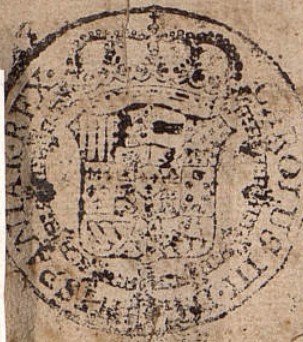 CAROLUS·III·D·
HISPANIAR·REX·